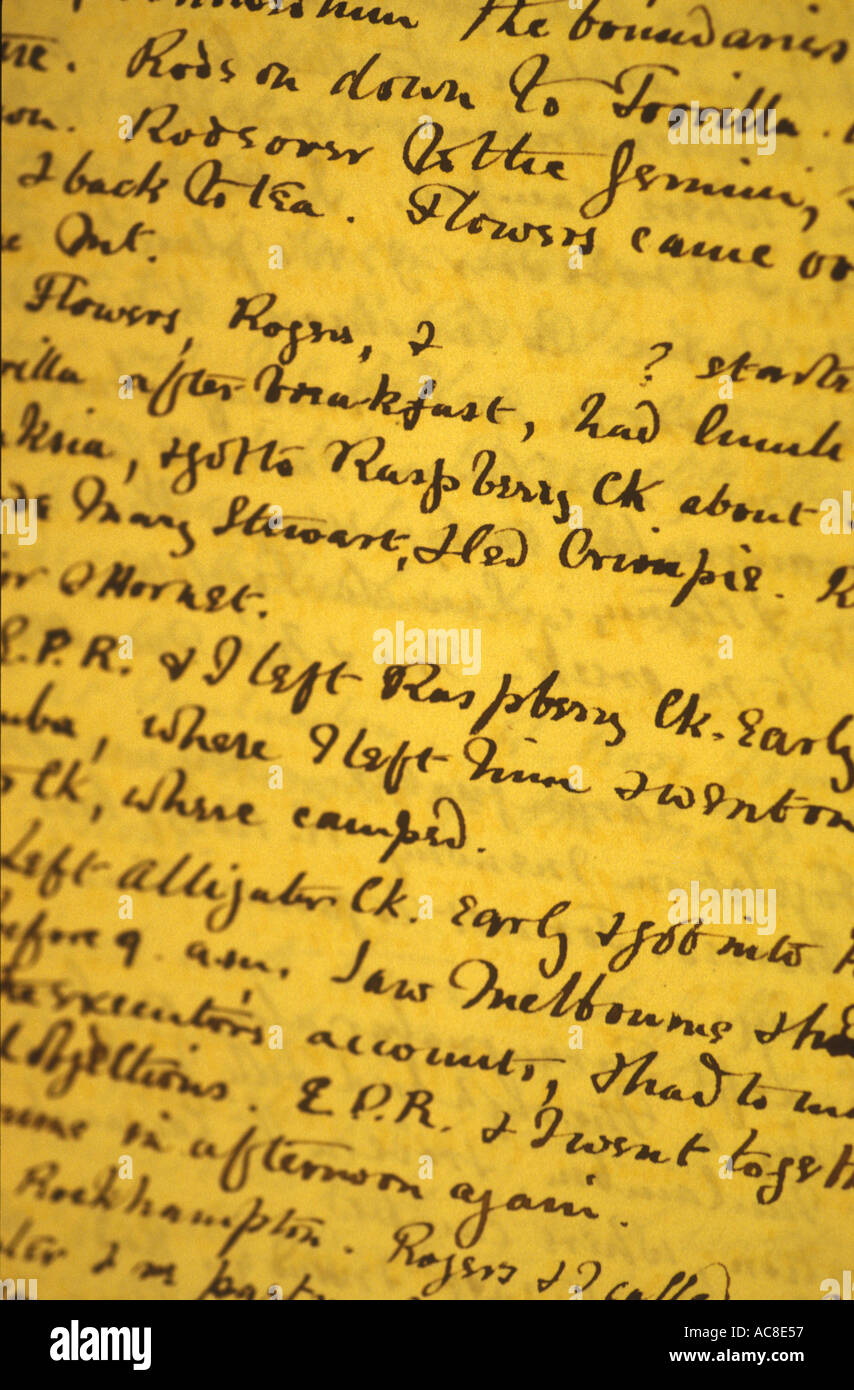 him the boundaries
Rode on down to Torrilla.
Rode over to the Gemini,
& back to tea. Flowers came
Mt.
Flowers, Rogers, & ? start
rilla after breakfast, had lunch
ksia, & got to Raspberry Ck about
Mary Stewart, & led Crimpie. R
or & Hornet.
E.P.R. & I left Raspberry Ck. Early
uba, where I left him & went on
Ck, where camped.
Left Alligator Ck. Early & got into
before 9. a.m. Saw Melbourne & the
executor's accounts, & had to ma
objections. E.P.R. & I went togeth
in afternoon again.
Rockhampton. Rogers & I called
alamy
alamy stock photo
AC8E57
www.alamy.com